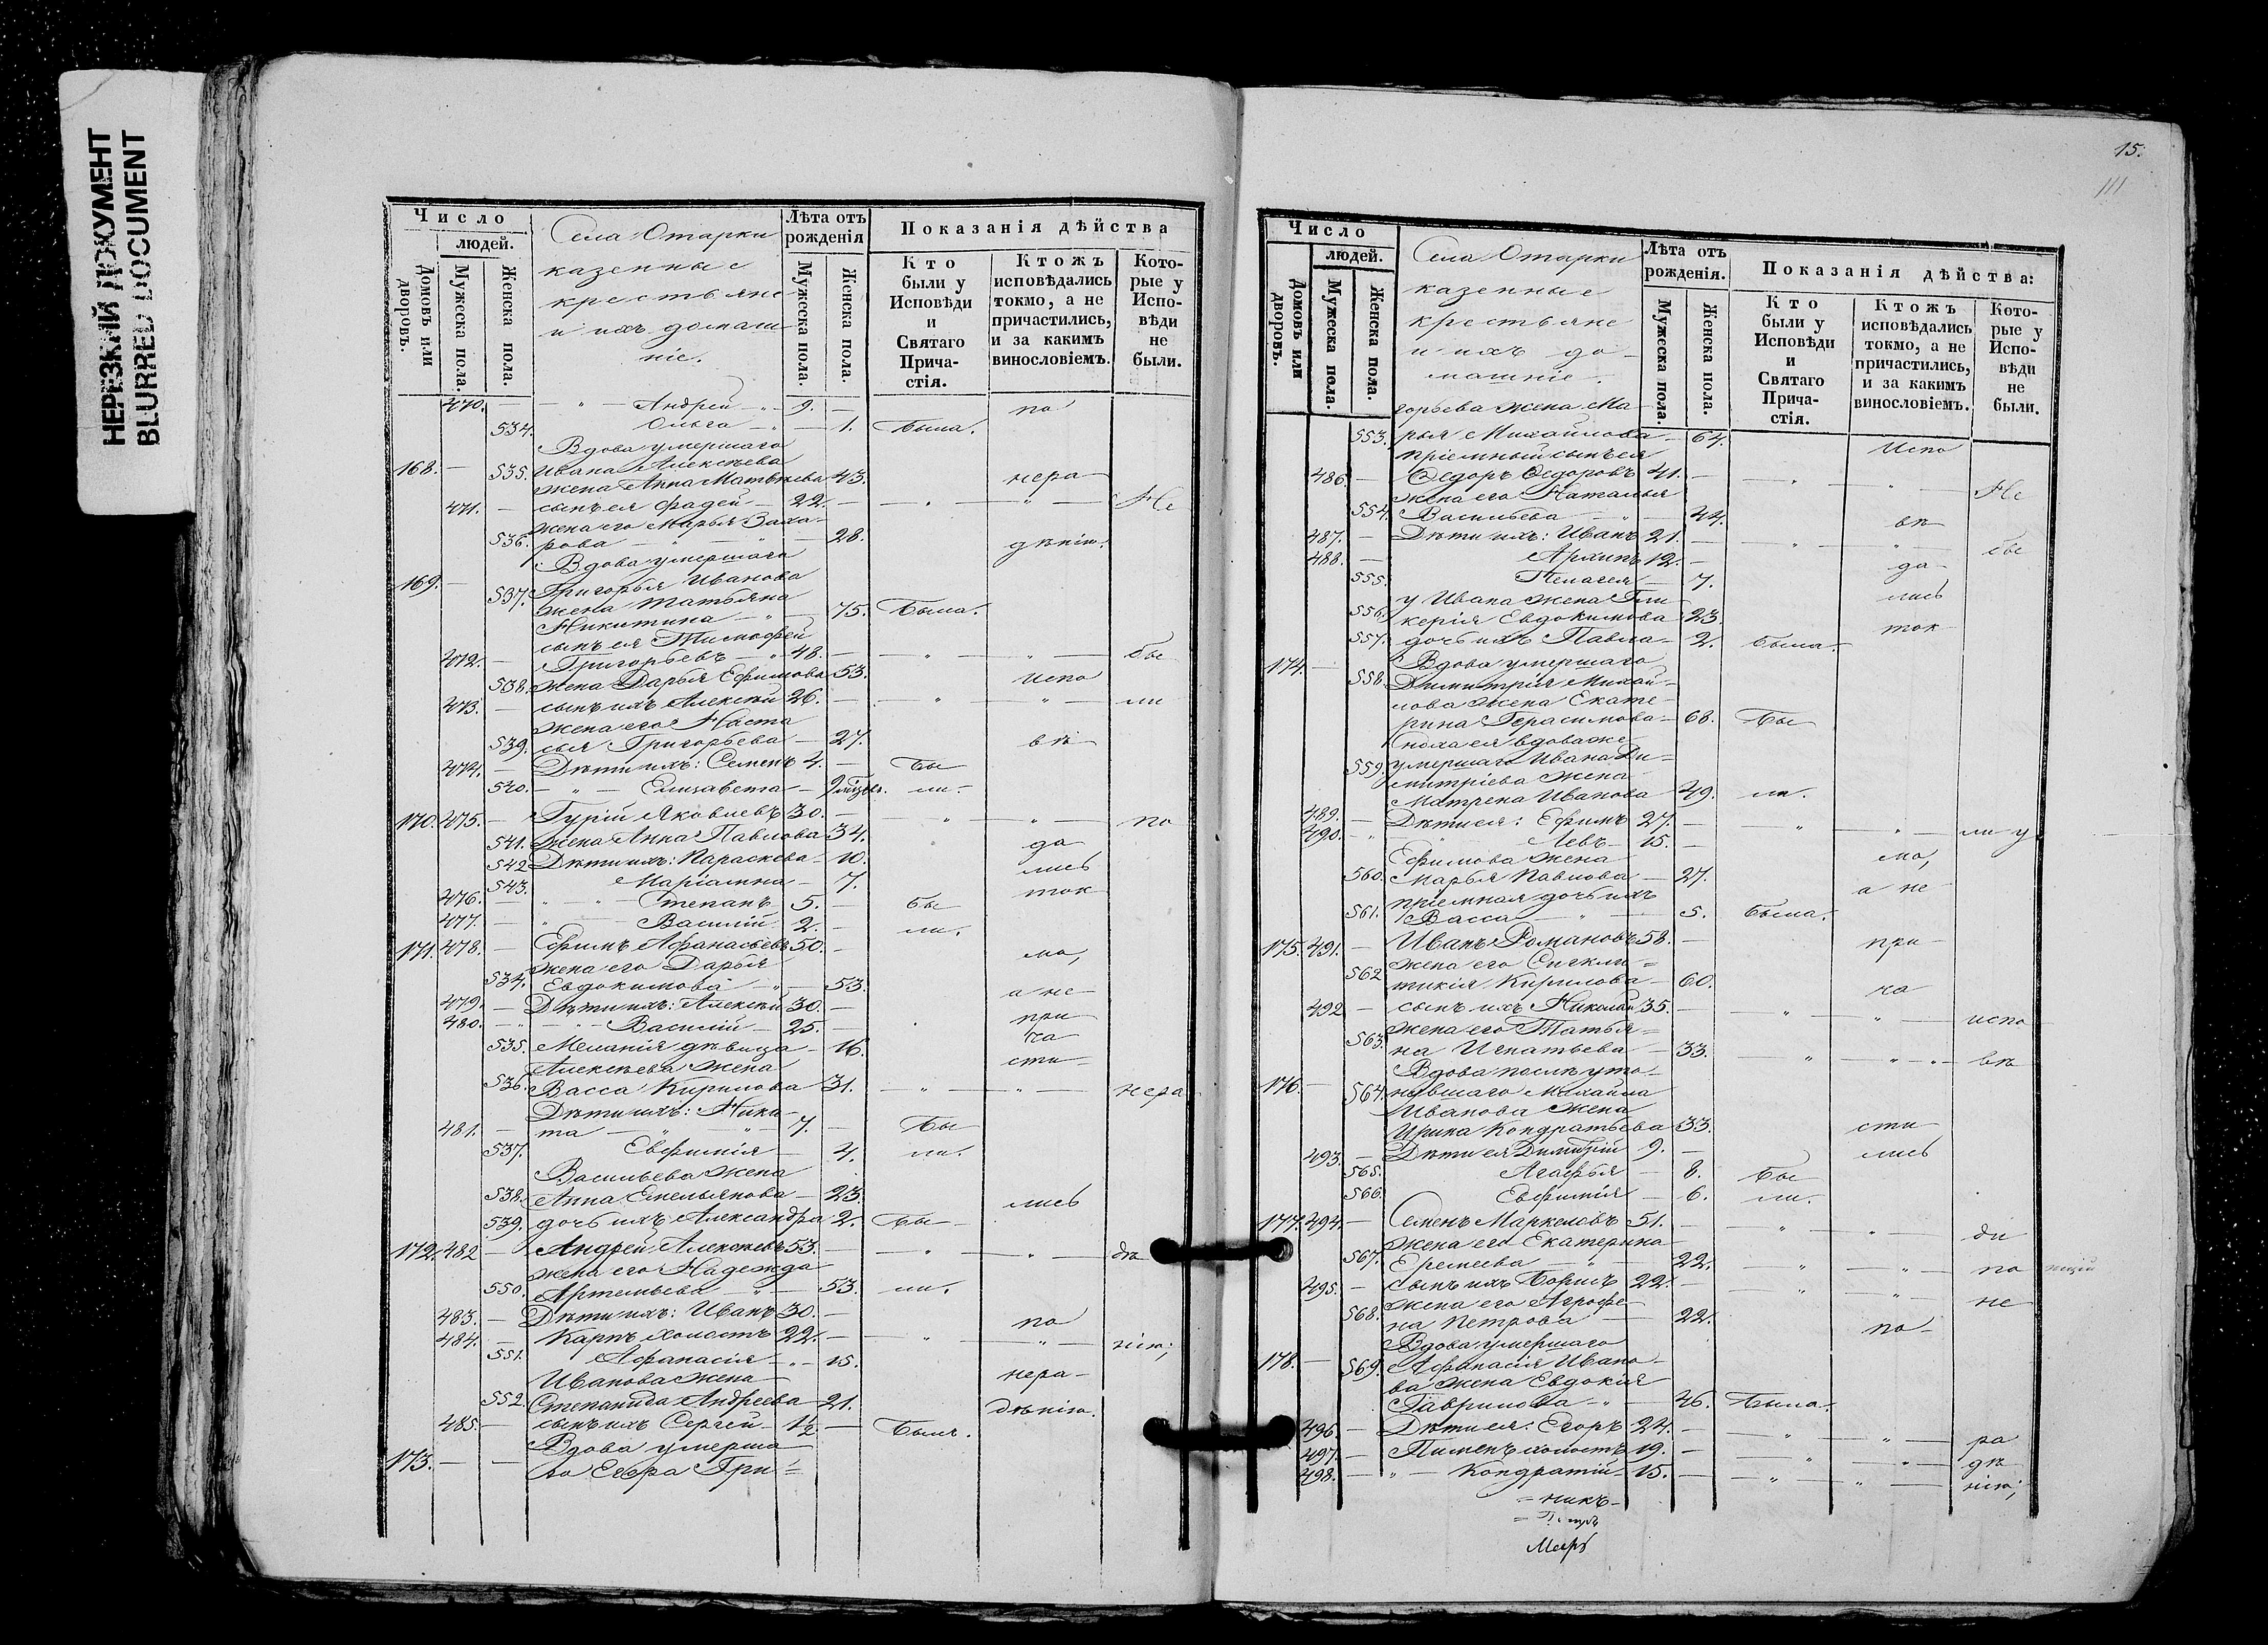 НЕРЕЗКИЙ ДОКУМЕНТ
BLURRED DOCUMENT
Число
людей.
Домовъ или дворовъ.
Мужеска пола.
Женска пола.
Села Отарки
казенные
крестьяне
и ихъ домаш
ніе.
Лѣта отъ
рожденія
Мужеска пола.
Женска пола.
Показанія дѣйства
Кто
были у
Исповѣди
и
Святаго
Прича-
стія.
Ктожъ
исповѣдались
токмо, а не
причастились,
и за какимъ
винословіемъ.
Кото-
рые у
Испо-
вѣди
не
были.
470. — " — Андрей — " — 9. — по
534. Ольга — " — 1. Была.
Вдова умершаго
168. — 535. Ивана Алексѣева
жена Анна Матвѣева 43. нера
471. — сынъ ея Фадей — 22. — " — " — Не
жена его Марья Заха-
536. рова — " — " — 28. дѣнію.
Вдова умершаго
169. — 537. Григорья Иванова
жена Татьяна
Никитина — " — 75. Была.
сынъ ея Тимофей
472. — Григорьевъ — " 48. — " — " — бы
538. жена Дарья Ефимова 53. Испо
473. — сынъ ихъ Алексѣй 26. — " — " — ли
жена его Наста
539. сья Григорьева — 27. вѣ
474. — Дѣти ихъ: Семенъ 4. — Бы
540. — " — Елизавета — ли.
170. 475. — Гурій Яковлевъ 30. — " — " — по
541. жена Анна Павлова 34. да
542 Дѣти ихъ: Параскева — 10. лись
543. Маріамна — 7. ток
476. — " — " — Степанъ 5. — бы
477. — " — Василій 2. — ли.
171. 478. — Ефимъ Афанасьевъ 50. — мо,
жена его Дарья
534. Евдокимова — " — 53. а не
479. — Дѣти ихъ: Алексѣй 30. —
480. — " — " — Василій — 25. — при
535. Меланія дѣвица — 16. ча
Алексѣева жена сти
536. Васса Кирилова 31. — " — " — нера
Дѣти ихъ: Ники-
481. — та — " — " — 7. — Бы
537. Евфимія — 4. ли.
Васильева жена
538. Анна Емельянова — 23. лись
539. дочь ихъ Александра 2. Бы
172. 482 — Андрей Алексѣевъ 53. — " — " — дѣ
жена его Надежда
550. Артемьева — " — 53. ли.
483. — Дѣти ихъ: Иванъ 30. — по
484. — Карпъ холостъ 22. — " — " — нію;
551. Афанасія — " — 15.
Иванова жена нера-
552. Степанида Андреева — 21. дѣнію.
485. — сынъ ихъ Сергей — 1½ — Былъ.
Вдова умерша
173. — — го Егора Гри=
15.
111
Число
людей.
Домовъ или дворовъ.
Мужеска пола.
Женска пола.
Села Отарки
казенные
крестьяне
и ихъ до-
машніе.
Лѣта отъ
рожденія.
Мужеска пола.
Женска пола.
Показанія дѣйства:
Кто
были у
Исповѣди
и
Святаго
Прича-
стія.
Ктожъ
исповѣдались
токмо, а не
причастились,
и за какимъ
винословіемъ.
Кото-
рые у
Испо-
вѣди
не
были.
горьева жена Ма-
553. рья Михайлова — 64. Испо
пріемный сынъ ея
486. — Ѳедоръ Ѳедоровъ 41. — " — " — Не
жена его Наталья
554. Васильева — " — 44. вѣ
487. — Дѣти ихъ: Иванъ 21. — " — " — бы
488. — Архипъ 12. — да
555. Пелагея — 7. лись
у Ивана жена Гли
556. керія Евдокимова — 23. ток
557. дочь ихъ Павла — 2. Была.
174. — Вдова умершаго
558. Димитрія Михай-
лова жена Екате-
рина Герасимова — 68. Бы
сноха ея вдова же
559. умершаго Ивана Ди=
митріева жена
Матрена Иванова 49. ли.
489. — Дѣти ея: Ефимъ 27. — " — " — ли у
490. — " Левъ — 15. —
Ефимова жена мо,
560. Марья Павлова — 27. а не
пріемная дочь ихъ
561. Васса — " — 5. Была.
175. 491. — Иванъ Романовъ 58. — при
жена его Синкли=
562 тикія Кирилова — 60. ча
492 — сынъ ихъ Николай 35. — " — " — испо
жена его Татья=
563. на Игнатьева — 33. — " — " — вѣ
Вдова послѣ уто-
176. — 564. нувшаго Михайла
Иванова жена
Ирина Кондратьева 33. сти
493. — Дѣти ея Димитрій 9. — лись
565. Агафья — 8. Бы
566. Евфимія — 6. ли.
177. 494. — Семенъ Маркеловъ 51. — " — " — ди
жена его Екатерина
567. Еремеева — " — 22. — " — " — по
495. — сынъ ихъ Борисъ 22. — " — " — не
жена его Агрофе
568. на Петрова — 22. по-
Вдова умершаго
178. — 569. Афанасія Ивано-
ва жена Евдокія
Гаврилова — " — 46. Была.
496 — Дѣти ея: Егоръ 24. — " — " — ра
497. — Пименъ холостъ 19. — " — " — дѣ
498. — " — Кондратій — 15. — " — " — нію;
=никъ-